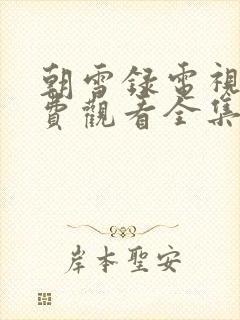 朝雪録電視
費觀看全集
岸本聖安